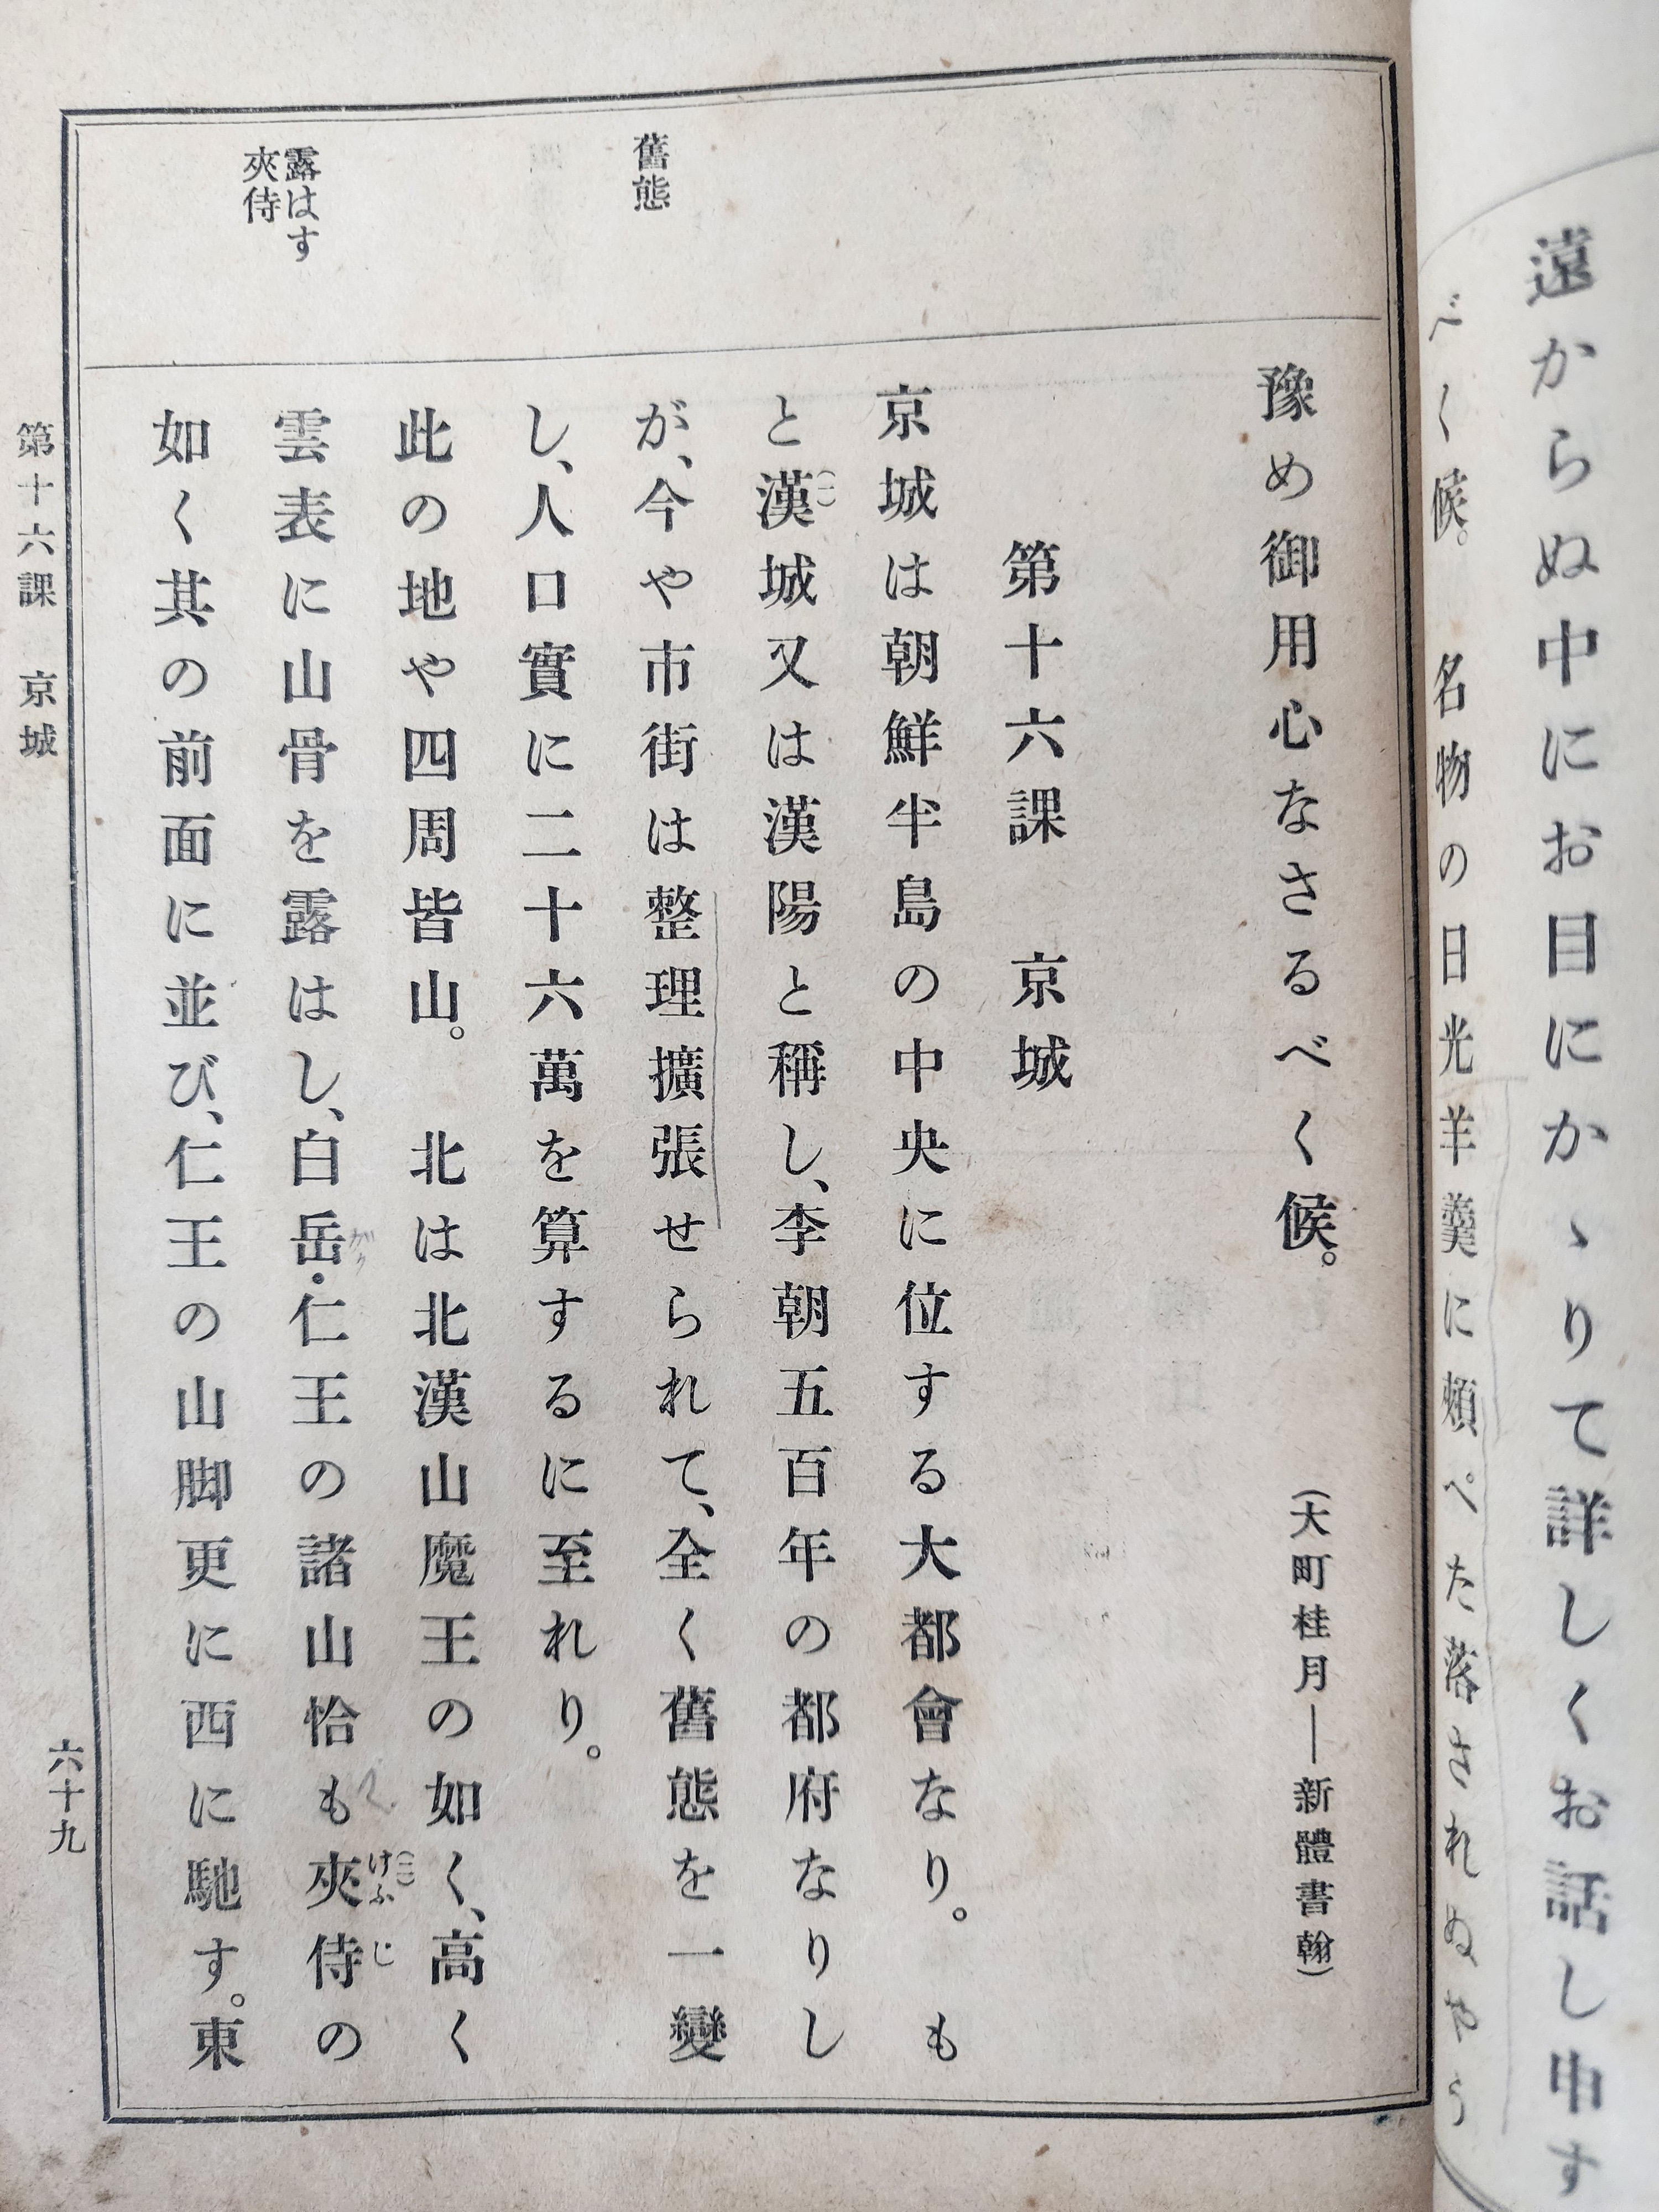 遠からぬ中にお目にかゝりて詳しくお話し申す
べく候。　名物の日光羊羹に頰ぺた落されぬやう
豫め御用心なさるべく候。
(大町桂月―新體書翰)
第十六課　京城
京城は朝鮮半島の中央に位する大都會なり。　も
と漢(一)城又は漢陽と稱し、李朝五百年の都府なりし
が、今や市街は整理擴張せられて、全く舊態を一變
し、人口實に二十六萬を算するに至れり。
此の地や四周皆山。　北は北漢山魔王の如く、高く
雲表に山骨を露はし、白岳・仁王の諸山恰も夾(二)侍の
けふじ
如く其の前面に並び、仁王の山脚更に西に馳す。東
舊態
露はす
夾侍
第十六課　京城
六十九